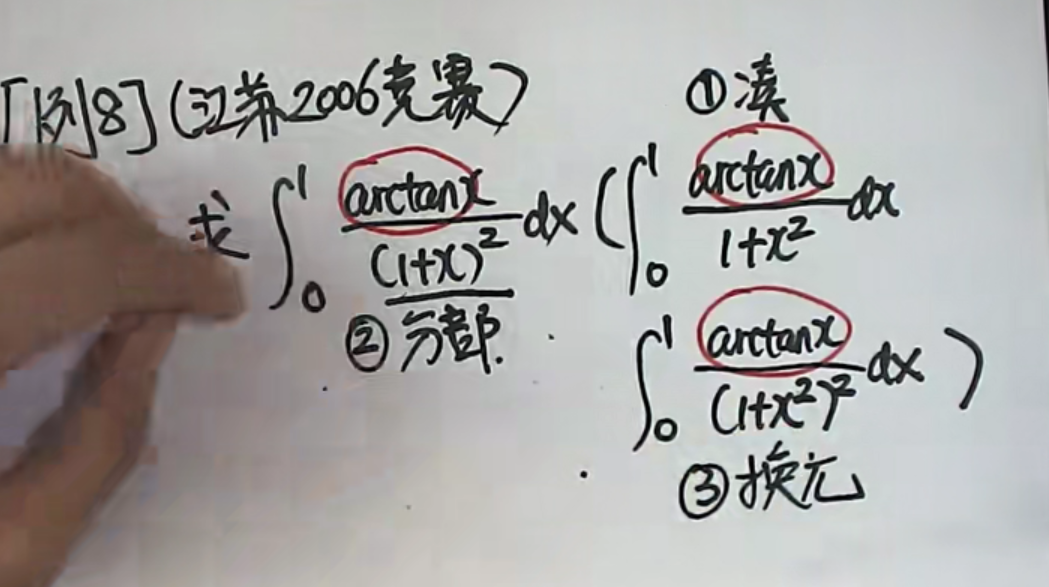 [例8](江苏2006竞赛)
①凑
求 ∫₀¹ arctanx/(1+x)² dx (∫₀¹ arctanx/1+x² dx
②分部.
∫₀¹ arctanx/(1+x²)² dx )
③换元